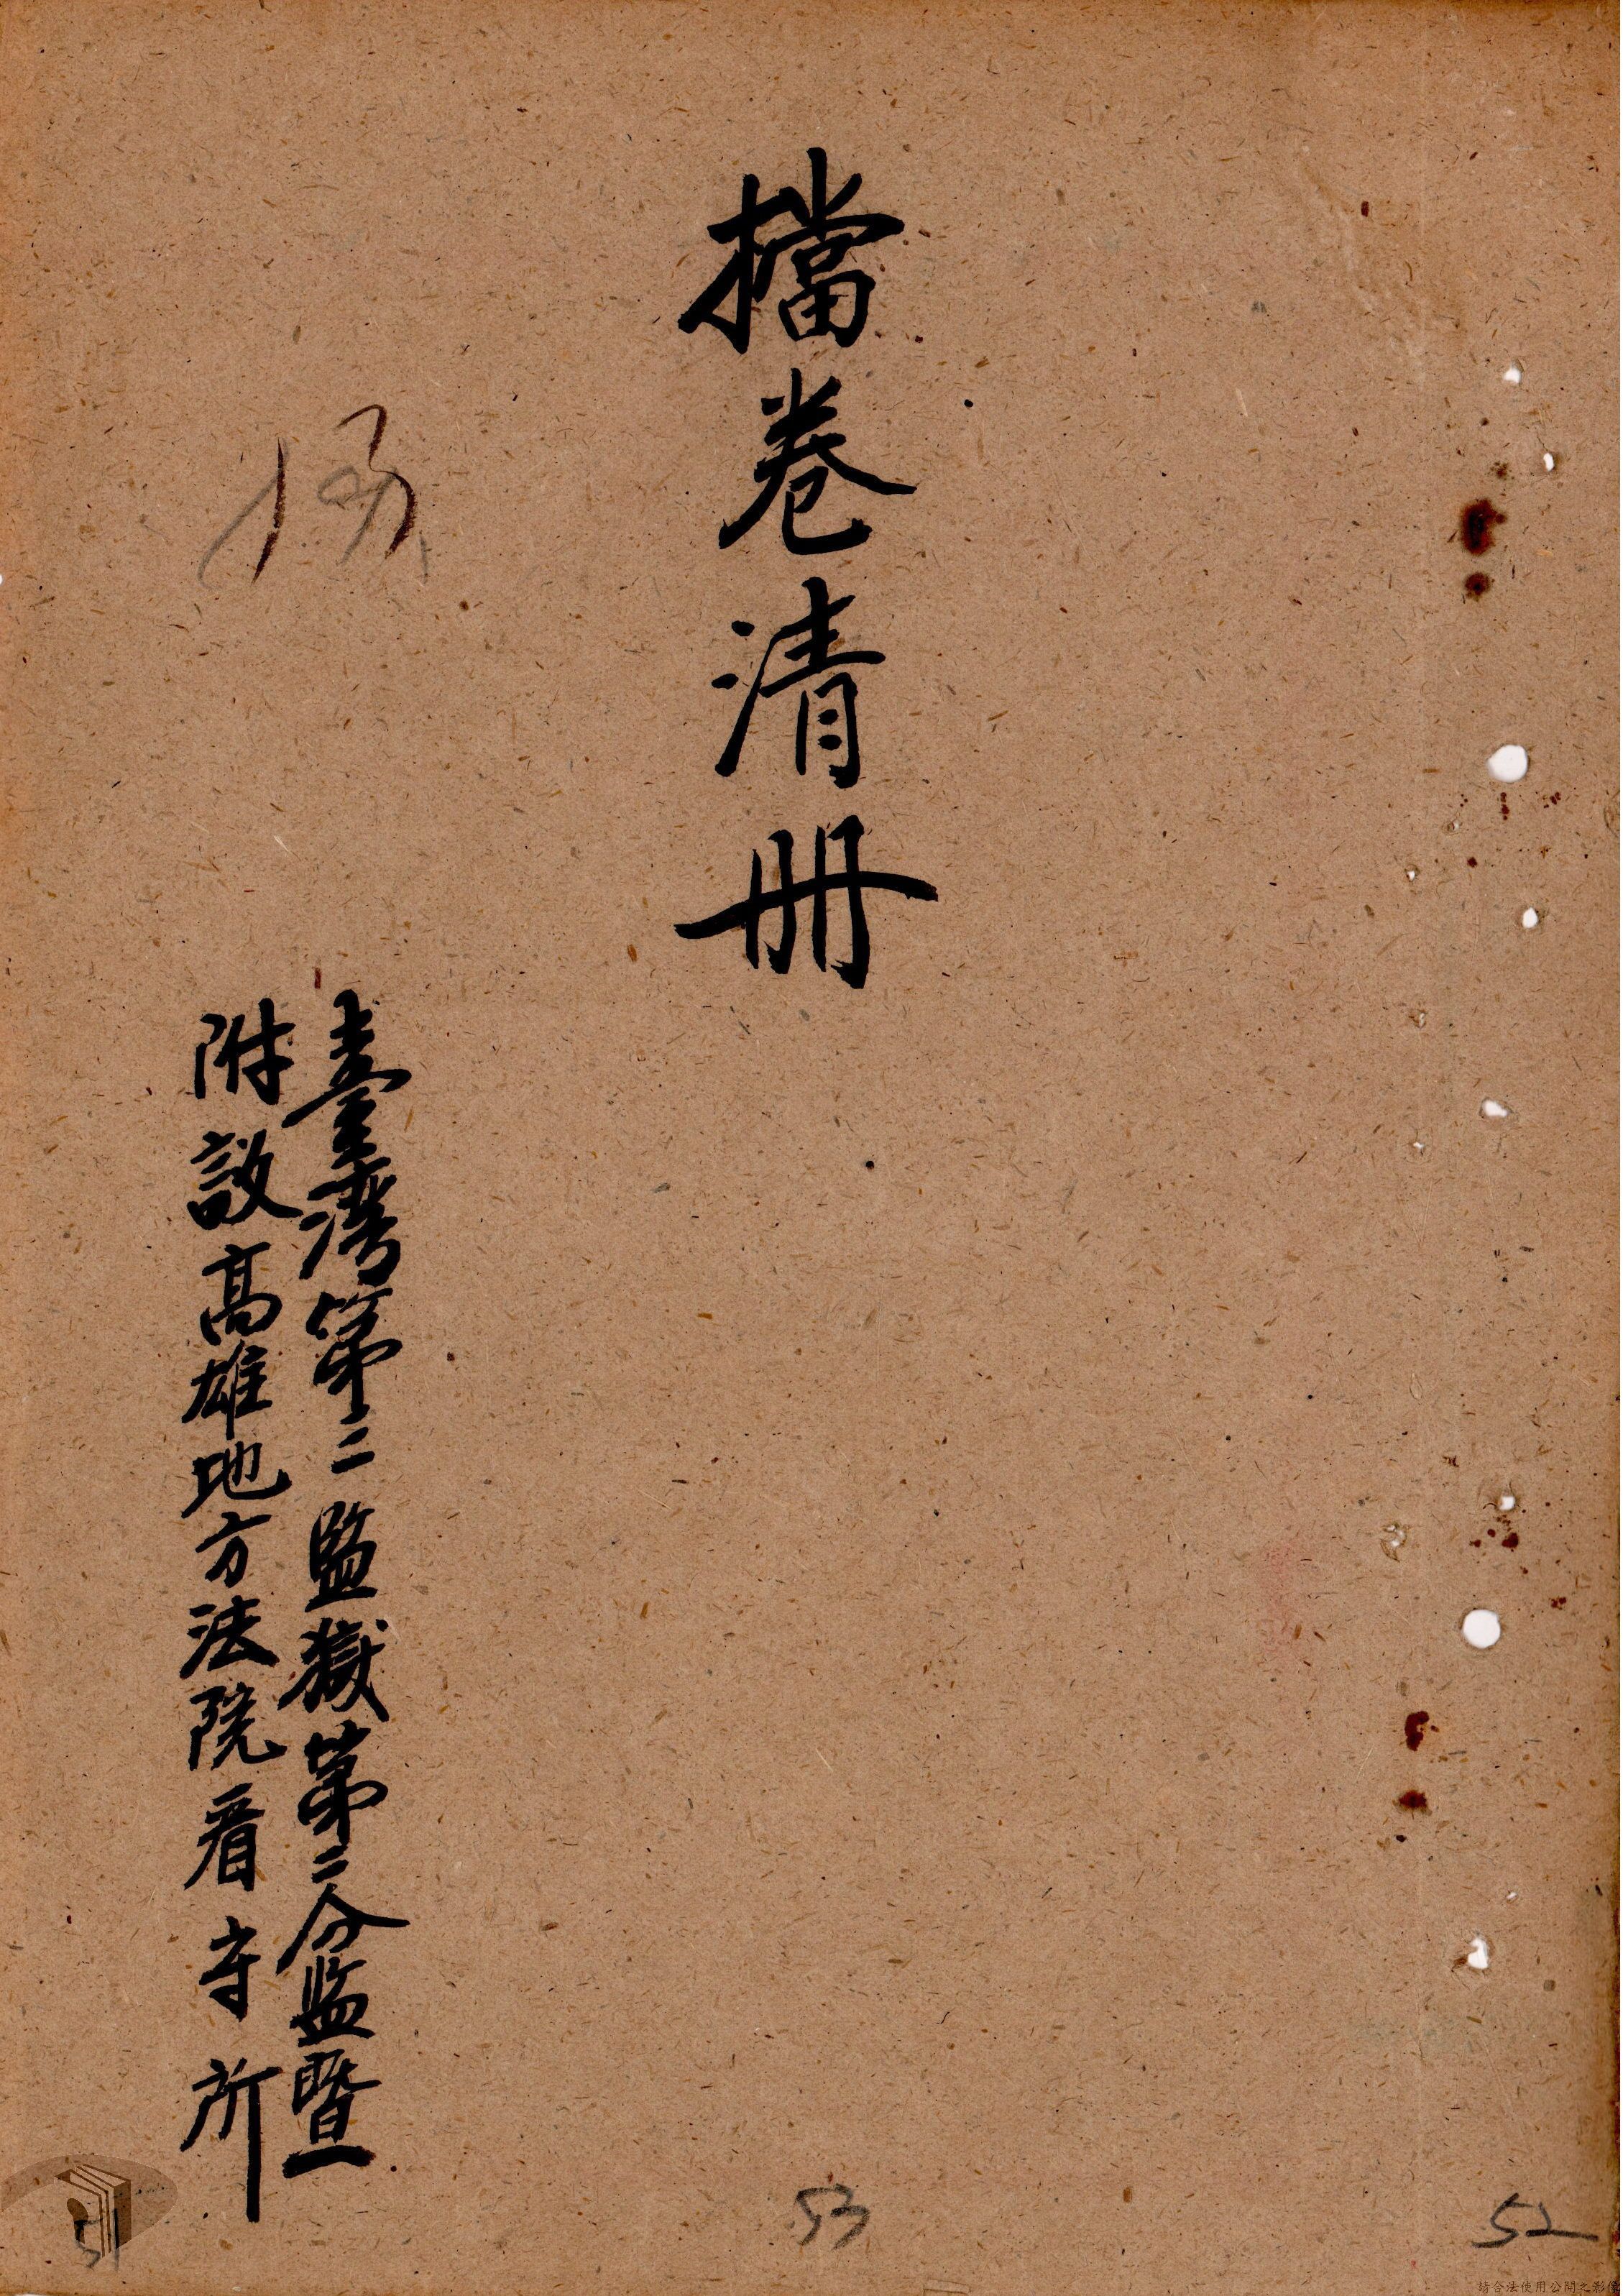 擋卷清冊
臺灣第二監獄第二分監暨
附設高雄地方法院看守所
13
51
53
52
請合法使用公開之影像